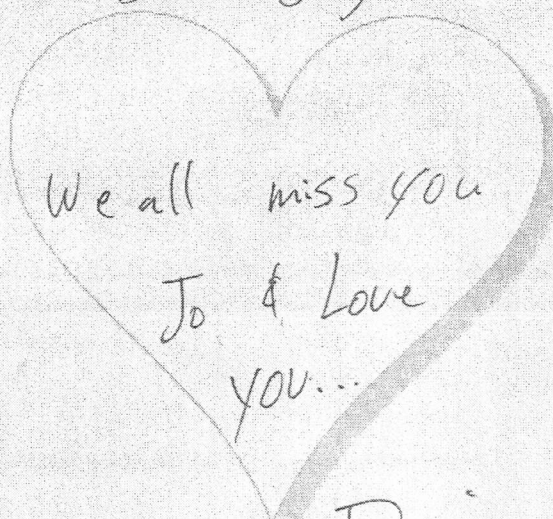 We all miss you
Jo & Love
you...